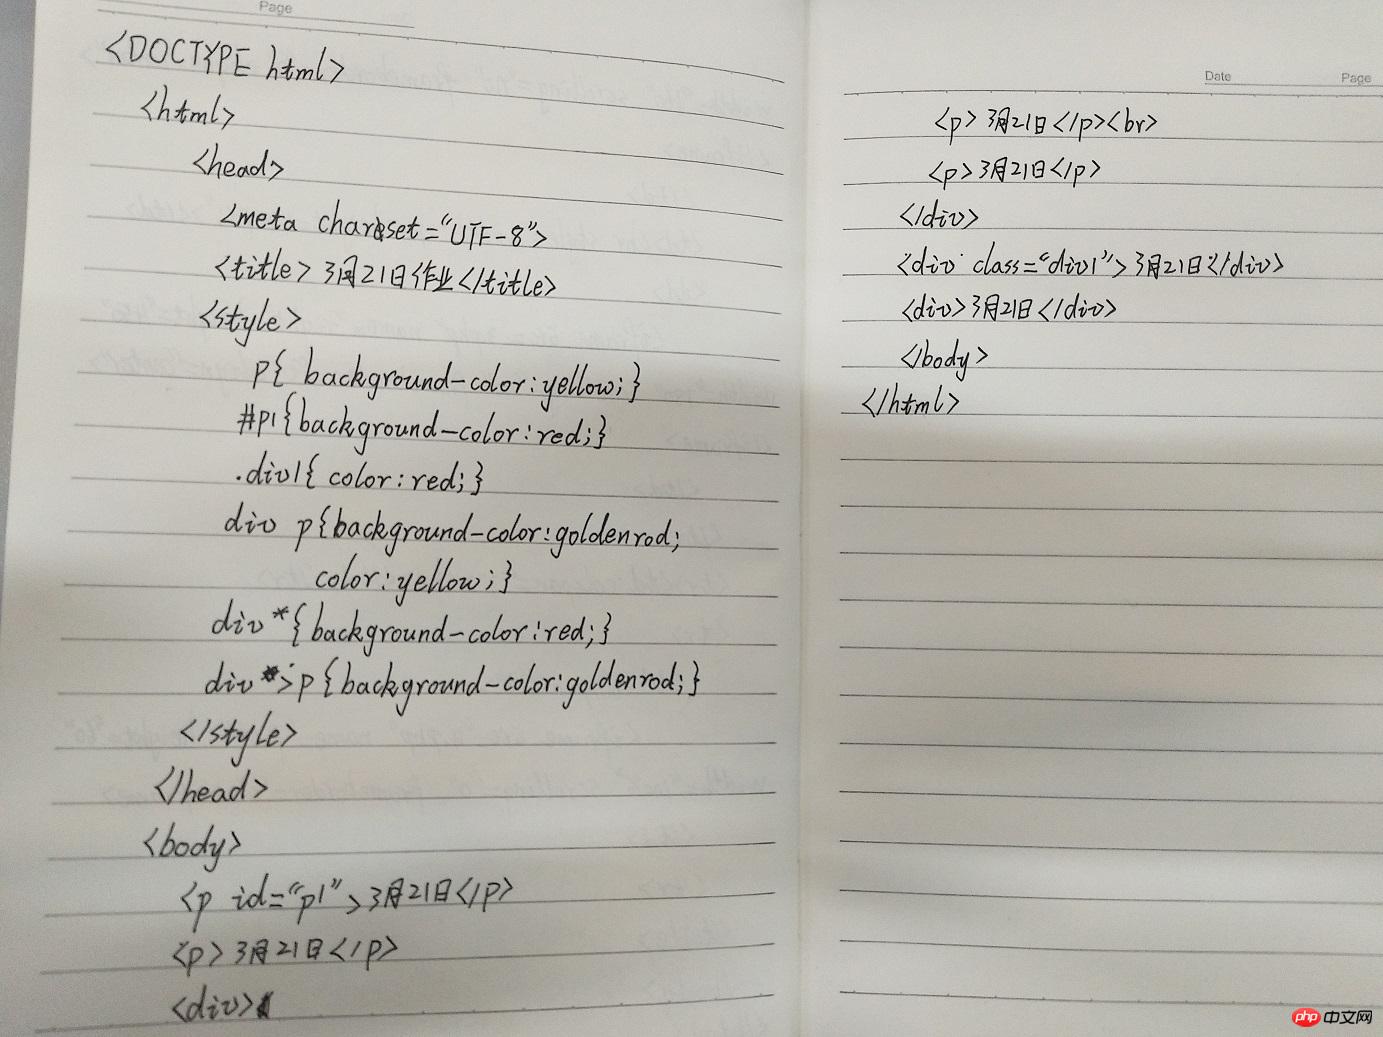 Page
<DOCTYPE html>
<html>
<head>
<meta charset="UTF-8">
<title>3月21日作业</title>
<style>
p{ background-color:yellow;}
#p1{background-color:red;}
.div1{ color:red;}
div p{background-color:goldenrod;
color:yellow;}
div *{background-color:red;}
div *>p{background-color:goldenrod;}
</style>
</head>
<body>
<p id="p1">3月21日</p>
<p>3月21日</p>
<div>
Date Page
<p>3月21日</p><br>
<p>3月21日</p>
</div>
<div class="div1">3月21日</div>
<div>3月21日</div>
</body>
</html>
php 中文网